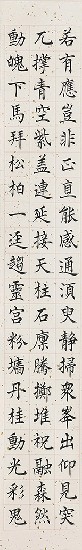 若有應豈非正直能感通須臾靜掃衆峯出仰見突
兀撐青空紫蓋連延接天柱石廩騰擲堆祝融森然
動魄下馬拜松柏一逕趨靈宮粉墻丹桂動光彩鬼